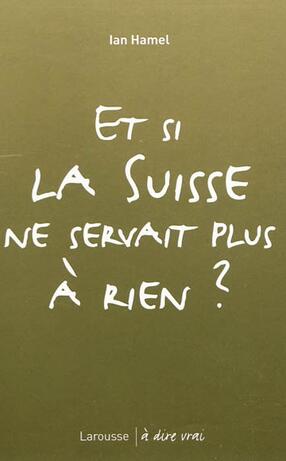 Ian Hamel
ET SI
LA SUISSE
NE SERVAIT PLUS
À RIEN ?
Larousse | à dire vrai